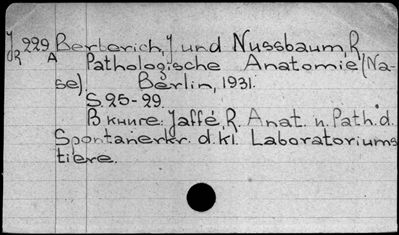 J 229 Berberich, J. und Nussbaum, R.
R A Pathologische Anatomie (Na-
se). Berlin, 1931.
S. 25-29.
В книге: Jaffé, R. Anat. u. Path. d.
Spontanerkr. d. kl. Laboratoriums
tiere.